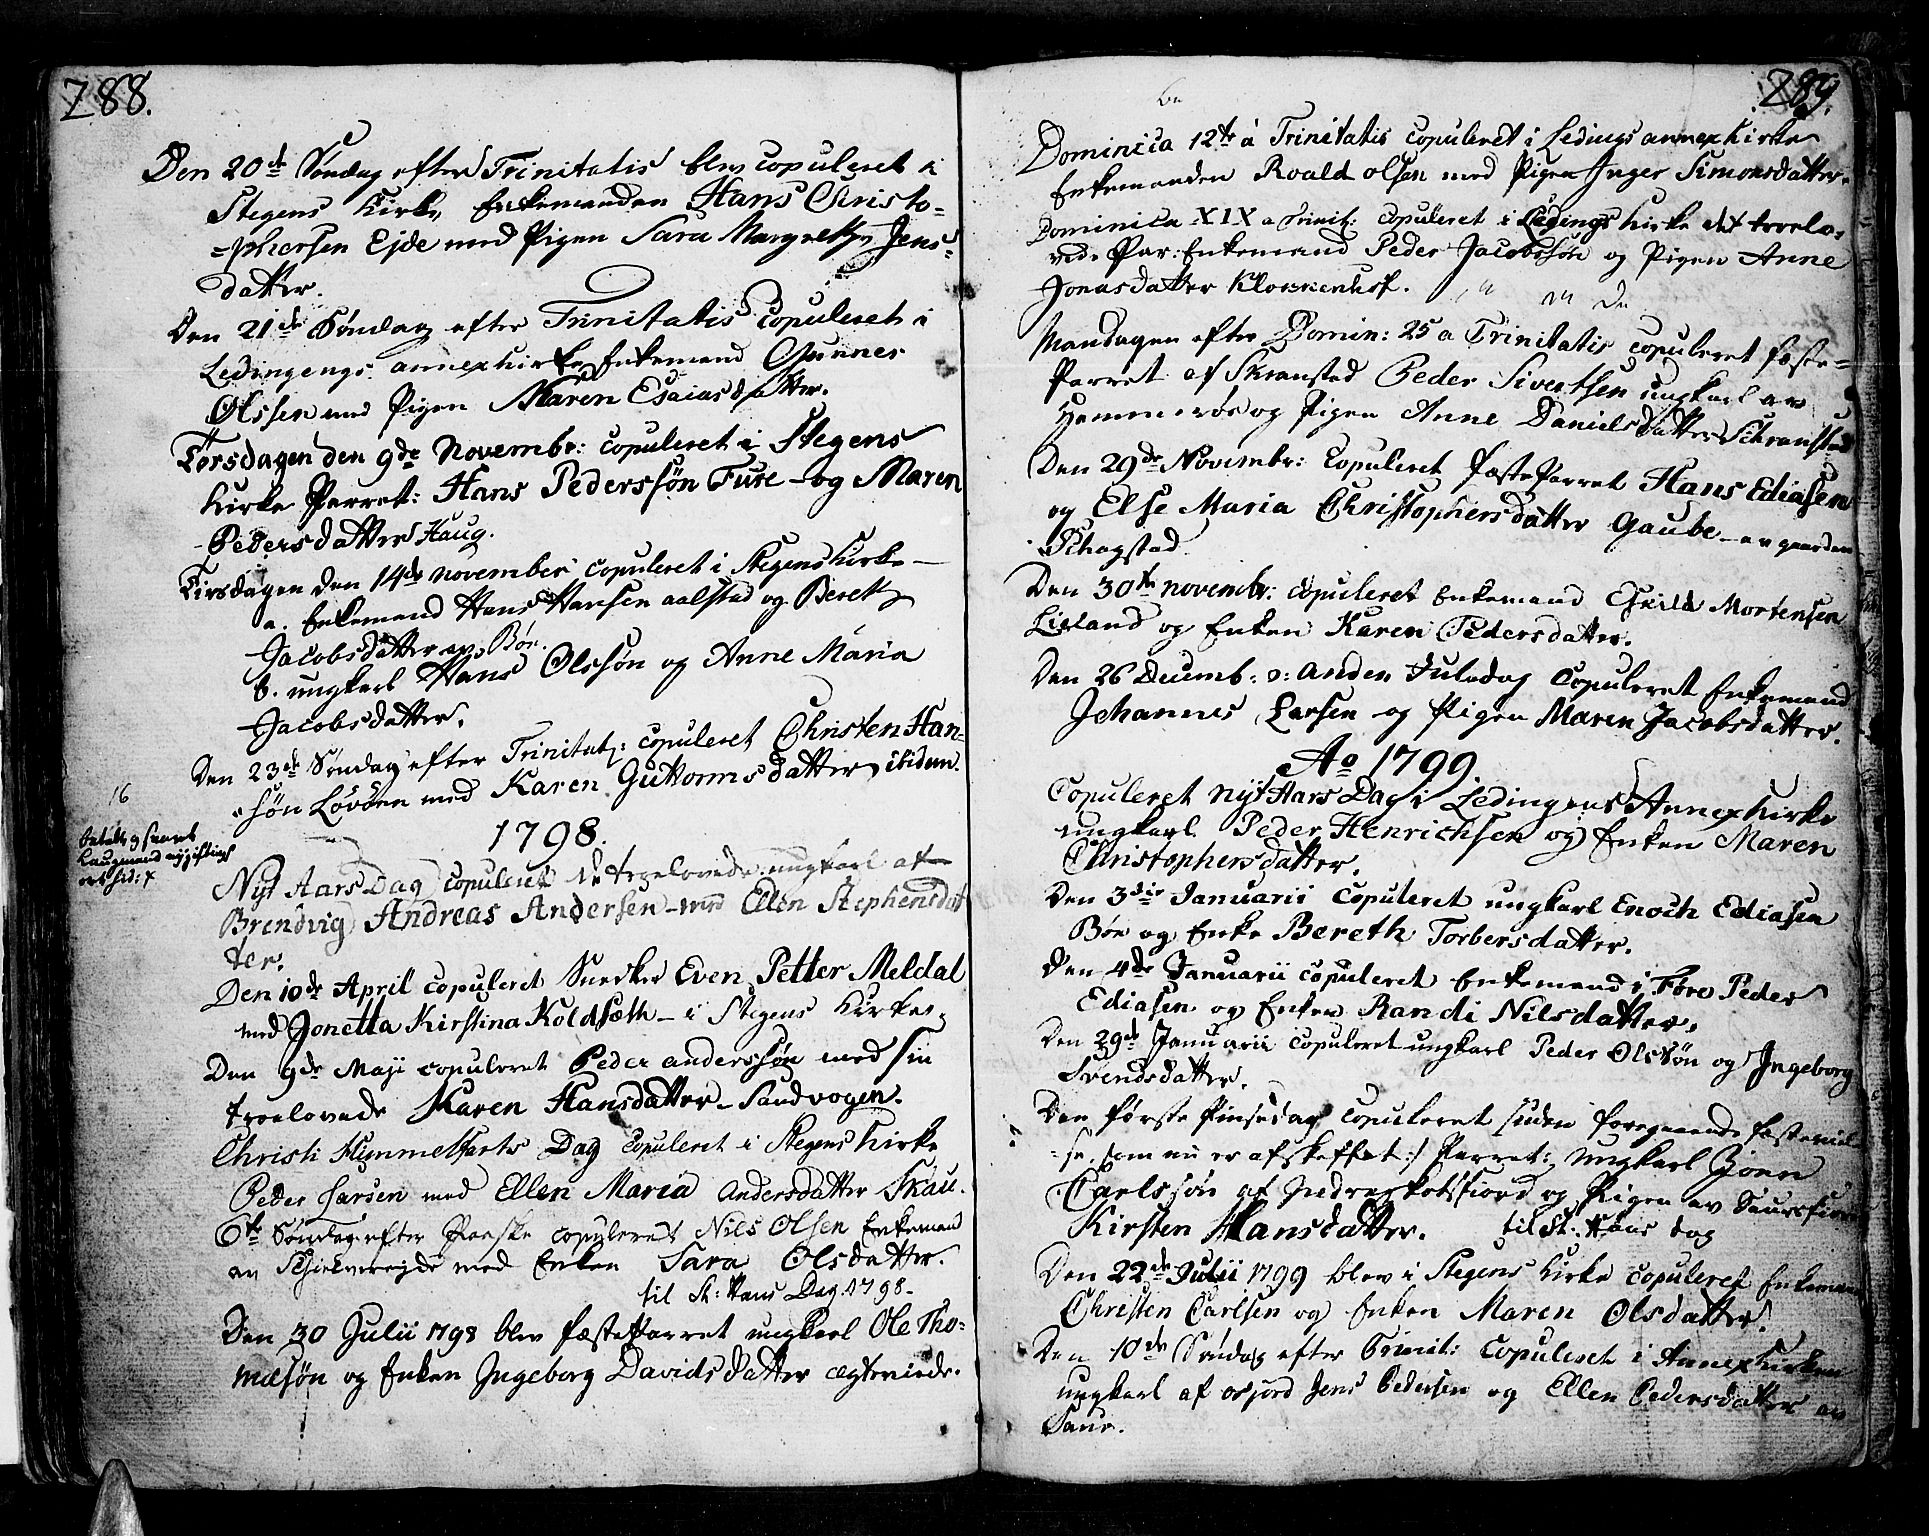 288.
Den 20de Søndag efter Trinitatis blev copuleret i
Stegens Kirke Enkemanden Hans Christo-
=phersen Ejde med Pigen Sara Margrethe Jens-
datter.
Den 21de Søndag efter Trinitatis Copuleret i
Ledingengs annexkirke Enkemand Gunner
Olssen med Pigen Maren Esaiasdatter.
Torsdagen den 9de Novembr: copuleret i Stegens
Kirke Parret: Hans Pederssøn Fure og Maren
Pedersdatter Haug.
Tirsdagen den 14de november copuleret i Stegens Kirke
a. Enkemand Hans Hansen aalstad og Bereth
Jacobsdatter av Bøe.
b. ungkarl Hans Olssøn og Anne Maria
Jacobsdatter.
Den 23de Søndag efter Trinitat: copuleret Christen Han-
søn Løvøen med Karen Guttormsdatter ibidem.
16
1798.
Nyt Aars Dag copuleret de troelovede ungkarl af
Brendvig Andreas Andersen med Ellen Stephensdat
ter.
Den 10de April copuleret Snedker Even Petter Meldal
med Jonetta Kirstina Koldsæth i Stegens Kirke.
Den 9de Maji copuleret Peder anderssøn med sin
troelovede Karen Hansdatter Sandvogen.
Christi Himmelfarts Dag copuleret i Stegens Kirke
Peder Larsen med Ellen Maria Andersdatter Skau.
6te Søndag efter Paaske copuleret Nils Olsen Enkemand
av med Enken Sara Olsdatter.
til St: Hans Dag 1798.
Den 30 Julii 1798 blev fæsteParret ungkarl Ole Tho-
mæsøn og Enken Ingeborg Davidsdatter ægteviede.
289.
Dominica 12te a Trinitatis copuleret i Ledings annexkirke
Enkemanden Roald Olsen med Pigen Inger Simonsdatter.
Dominica XIX a Trinit: copuleret i Ledings Kirke det troelo-
vede Par: Enkemand Peder Jacobssøn og Pigen Anne
Jonasdatter Klokkenhof.
Mandagen efter Domin: 25 a Trinitatis copuleret fæste-
Parret af Skranstad Peder Sivertsen ungkarl av
Hammerøe og Pigen Anne Danielsdatter Schranstad
Den 29de Novembr: Copuleret fæsteParret Hans Ediasen
og Else Maria Christophersdatter Gaube av gaarden
Schagstad
Den 30te novembr: copuleret Enkemand Eskild Mortensen
Lieland og Enken Karen Pedersdatter.
Den 26 Decemb: Anden Juledag Copuleret Enkemand
Johannes Larsen og Pigen Maren Jacobsdatter.
Ao 1799.
Copuleret Nyt Aars Dag i Ledingens Annex Kirke
ungkarl Peder Henrichsen og Enken Maren
Christophersdatter.
Den 3die Januarii copuleret ungkarl Enoch Ediasen
Bøe og Enke Bereth Torbersdatter.
Den 4de Januarii copuleret Enkemand i Føre Peder
Ediasen og Enken Randi Nilsdatter.
Den 29de Januarii copuleret ungkarl Peder Olssøn og Ingeborg
Svendsdatter.
Den første Pinsedag copuleret uden foregaaende
som nu er afskaffet :/ Parret: Ungkarl Joen
Carlssøn af Indre og Pigen av
Kirsten Hansdatter. til St: Hans dag
Den 22de Julii 1799 blev i Stegens Kirke copuleret Enkemand
Christen Carlsen og Enken Maren Olsdatter.
Den 10de Søndag efter Trinit: Copuleret i Annex Kirken
ungkarl af Jens Pedersen og Ellen Pedersdatter av